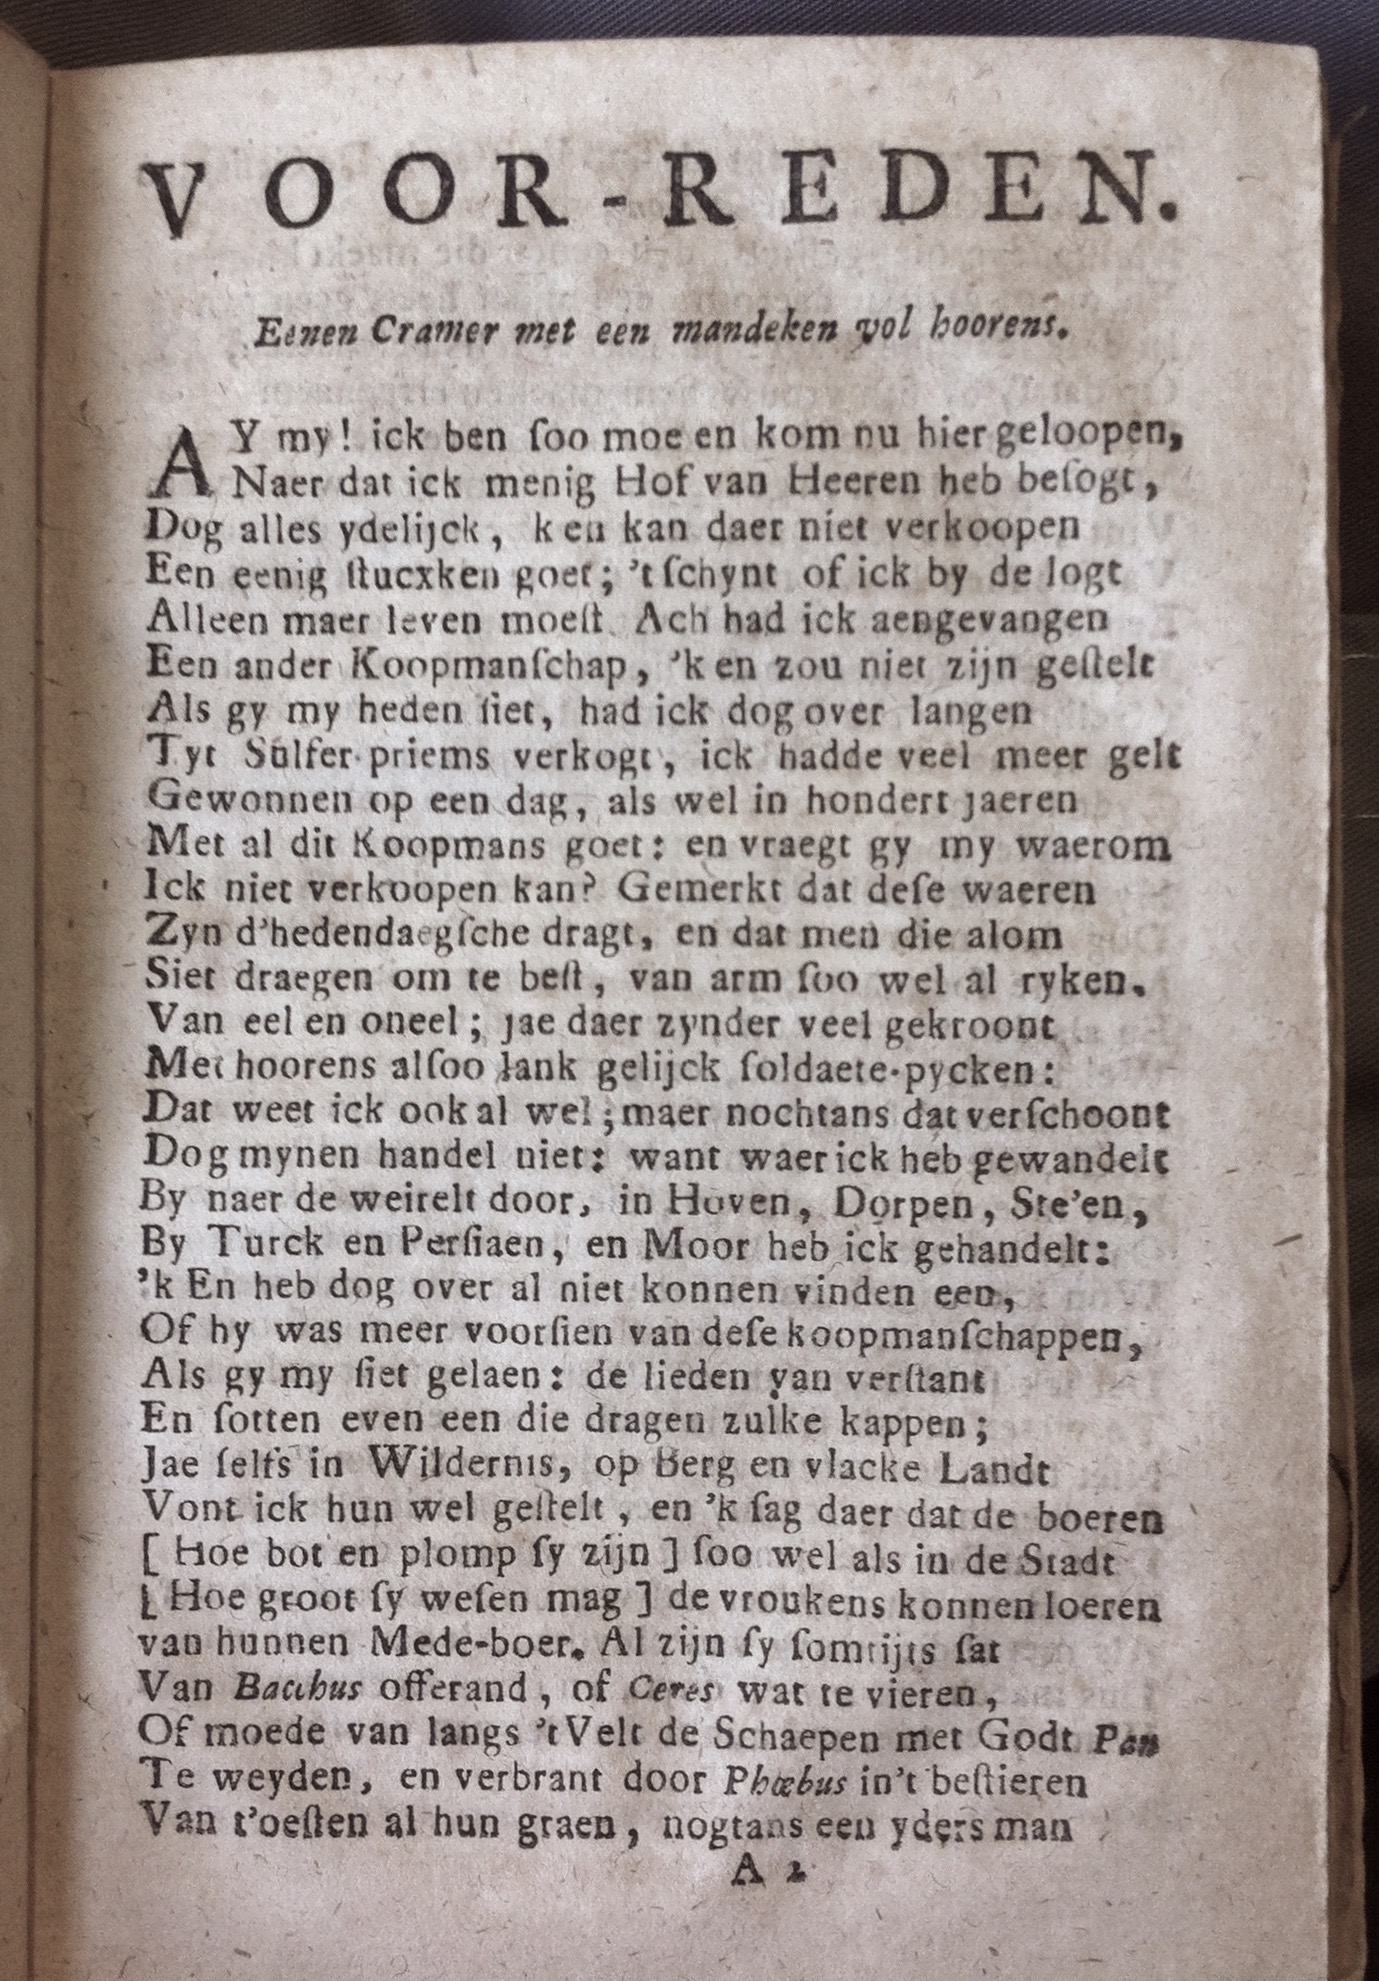 VOOR-REDEN.
Eenen Cramer met een mandeken vol hoorens.
AY my! ick ben ſoo moe en kom nu hier geloopen,
Naer dat ick menig Hof van Heeren heb beſogt,
Dog alles ydelijck, k en kan daer niet verkoopen
Een eenig ſtucxken goet; 't ſchynt of ick by de logt
Alleen maer leven moeſt. Ach had ick aengevangen
Een ander Koopmanſchap, 'k en zou niet zijn geſtelt
Als gy my heden ſiet, had ick dog over langen
Tyt Sulfer-priems verkogt, ick hadde veel meer gelt
Gewonnen op een dag, als wel in hondert jaeren
Met al dit Koopmans goet: en vraegt gy my waerom
Ick niet verkoopen kan? Gemerkt dat deſe waeren
Zyn d'hedendaegſche dragt, en dat men die alom
Siet draegen om te beſt, van arm ſoo wel al ryken.
Van eel en oneel; jae daer zynder veel gekroont
Met hoorens alſoo lank gelijck ſoldaete-pycken:
Dat weet ick ook al wel; maer nochtans dat verſchoont
Dog mynen handel niet: want waer ick heb gewandelt
By naer de weirelt door, in Hoven, Dorpen, Ste'en,
By Turck en Perſiaen, en Moor heb ick gehandelt:
'k En heb dog over al niet konnen vinden een,
Of hy was meer voorſien van deſe koopmanſchappen,
Als gy my ſiet gelaen: de lieden van verſtant
En ſotten even een die dragen zulke kappen;
Jae ſelfs in Wildernis, op Berg en vlacke Landt
Vont ick hun wel geſtelt, en 'k ſag daer dat de boeren
[ Hoe bot en plomp ſy zijn ] ſoo wel als in de Stadt
[ Hoe groot ſy weſen mag ] de vroukens konnen loeren
van hunnen Mede-boer. Al zijn ſy ſomtijts ſat
Van Bacchus offerand, of Ceres wat te vieren,
Of moede van langs 't Velt de Schaepen met Godt Pan
Te weyden, en verbrant door Phœbus in't beſtieren
Van t'oeſten al hun graen, nogtans een yders man
A 2